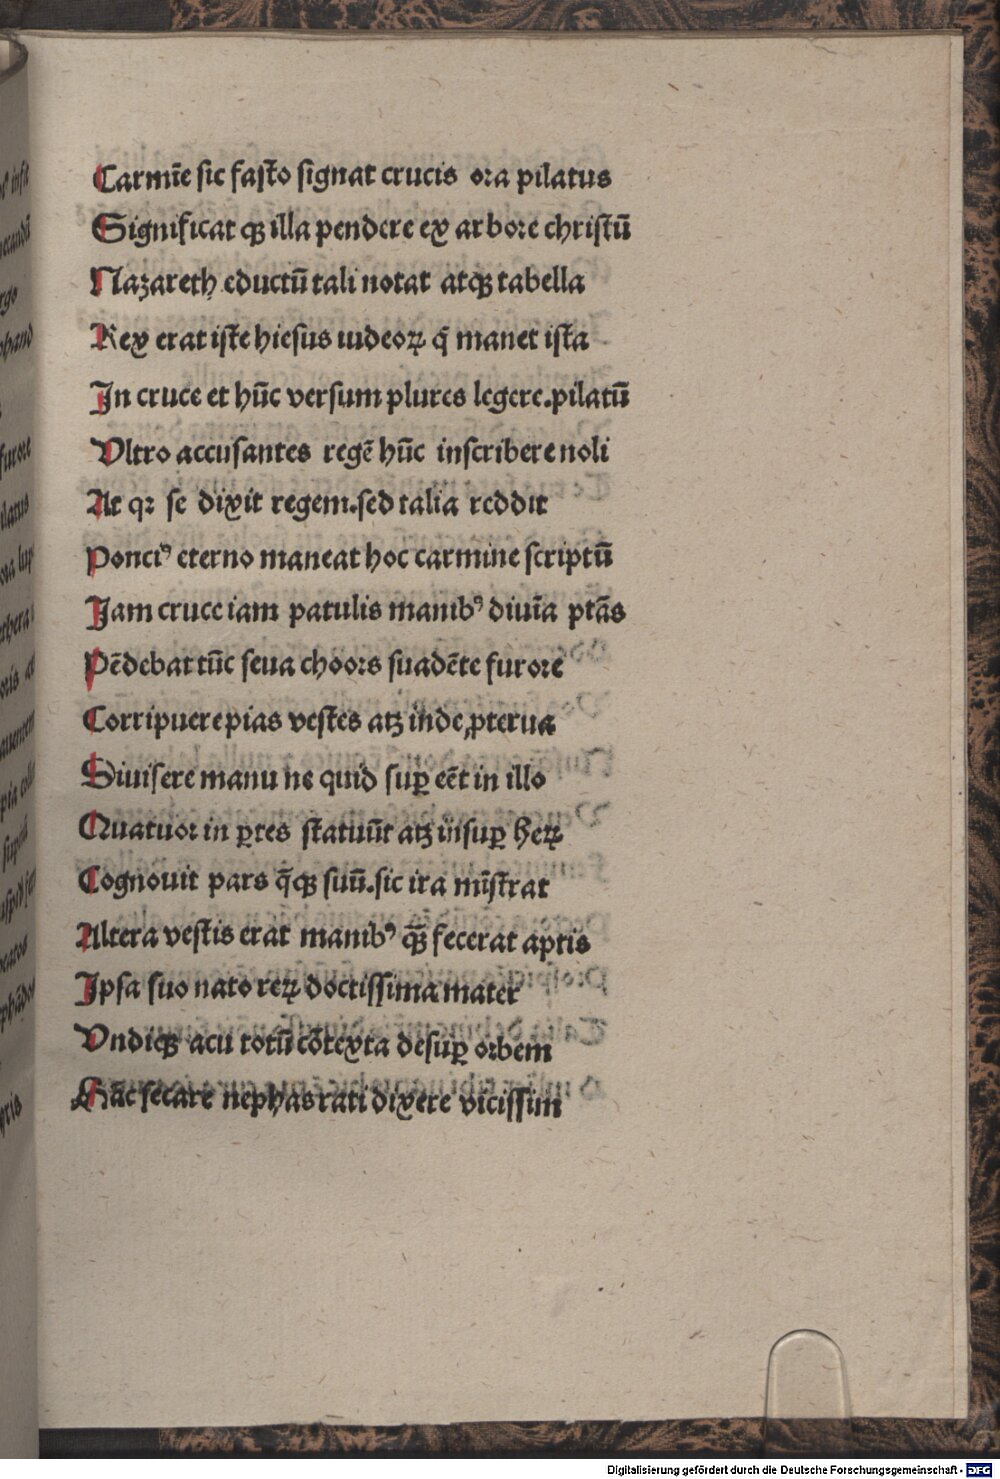 Carmīe sic fasto signat crucis ora pilatus
Significat qꝫ illa pendere ex arbore christū
Nazareth eductū tali notat atqꝫ tabella
Rex erat iste hiesus iudeoꝝ q̄ manet ista
In cruce et hūc versum plures legere.pilatū
Vltro accusantes regē hūc inscribere noli
At qꝛ se dixit regem.sed talia reddit
Ponciꝰ eterno maneat hoc carmine scriptū
Jam cruce iam patulis manibꝰ diuīa ptās
Pēdebat tūc seua choors suadēte furore
Corripuere pias vestes atꝫ inde ꝓterua
Diuisere manu ne quid suꝑ eēt in illo
Quatuor in ꝑtes statuūt atꝫ insuꝑ heꝝ
Cognouit pars q̄qꝫ suū.sic ira mīstrat
Altera vestis erat manibꝰ qꝫ̄ fecerat aptis
Ipsa suo nato reꝝ doctissima mater
Vndiqꝫ acu totū cōtexta desuꝑ orbem
Hāc secare nephas rati dixere vicissim
Digitalisierung gefördert durch die Deutsche Forschungsgemeinschaft - DFG